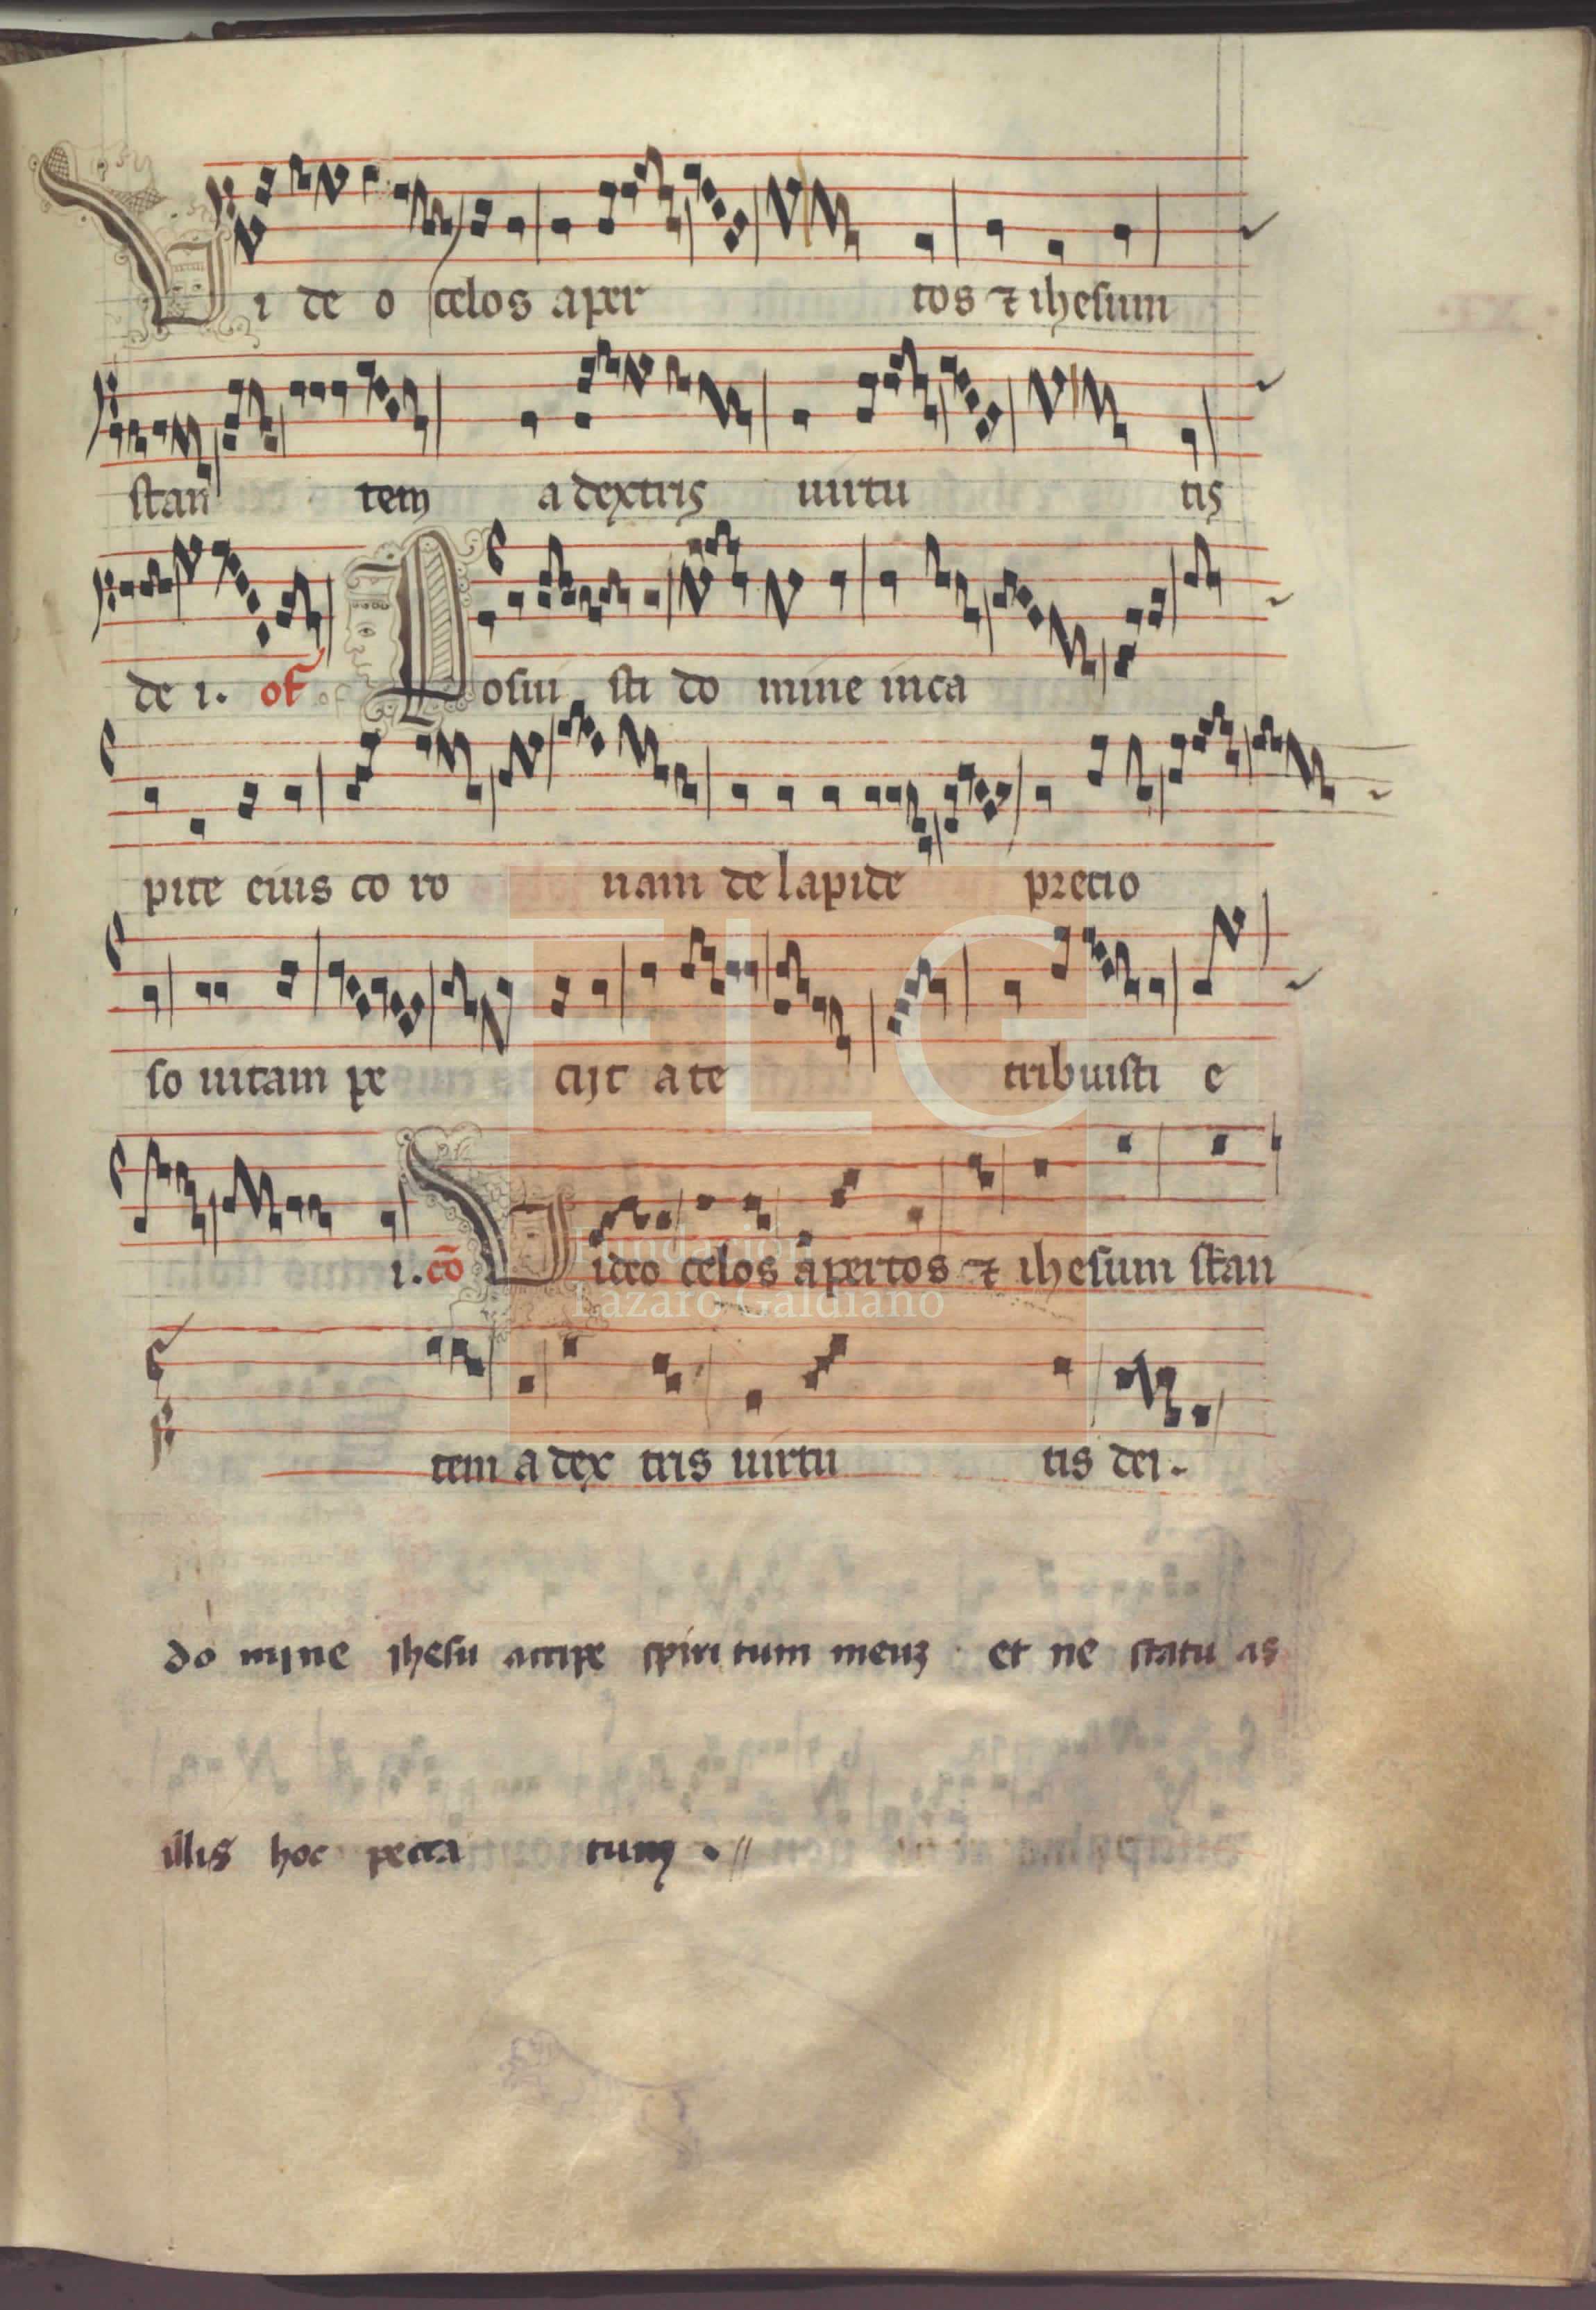 Vi de o celos aper tos ⁊ ihesum
stan tem a dextris uirtu tis
de i. of Posui sti do mine inca
pite eius co ro nam de lapide precio
so uitam pe cijt a te tribuisti e
i. cō Video celos apertos ⁊ ihesum stan
tem a dex tris uirtu tis dei.
do mine ihesu accipe spiri tum meuʒ · et ne statu as
illis hoc pecca tum . //
FLG
Fundación
Lázaro Galdiano